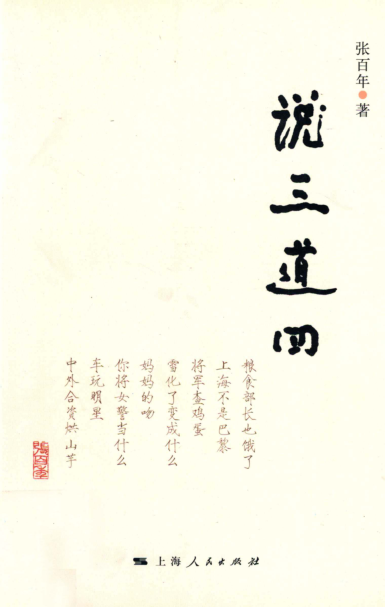 张百年·著
说三道四
粮食部长也饿了
上海不是巴黎
将军查鸡蛋
雪化了变成什么
妈妈的吻
你将女警当什么
车玩明星
中外合资烘山芋
張百年
上海人民出版社